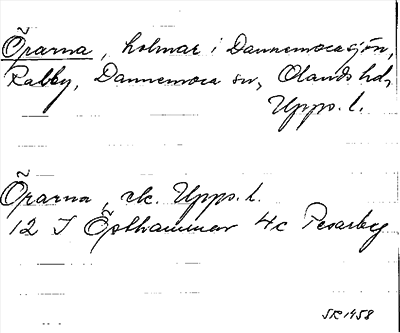 Örarna, holmar i Dannemorasjön,
Rabby, Dannemora sn, Olands hd,
Upps. l.
Örarna, ek. Upps. l.
12 I Östhammar 4c Pesarby
SR 1958